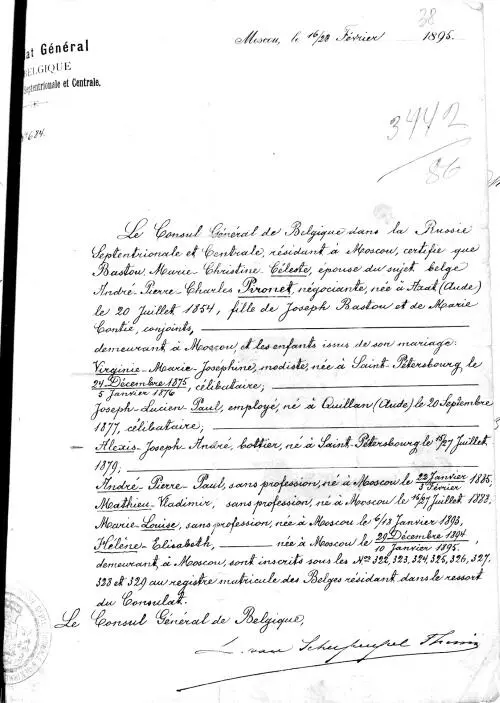 38
Moscou, le 16/28 Février 1895.
at Général
BELGIQUE
Septentrionale et Centrale.
N° 684.
3442
86
Le Consul Général de Belgique dans la Russie
Septentrionale et Centrale, résidant à Moscou, certifie que
Bastou, Marie-Christine-Céleste, épouse du sujet belge
André-Pierre-Charles Pironet, négociante, née à (Aude)
le 20 Juillet 1854, fille de Joseph Bastou et de Marie
Contie, conjoints,
demeurant à Moscou, et les enfants issus de son mariage:
Virginie-Marie-Josephine, modiste, née à Saint-Pétersbourg, le
24 Décembre 1875
5 Janvier 1876, célibataire;
Joseph-Lucien-Paul, employé, né à Quillan (Aude) le 20 Septembre
1877, célibataire;
Alexis-Joseph-André, bottier, né à Saint-Pétersbourg le 15/27 Juillet
1879;
André-Pierre-Paul, sans profession, né à Moscou le 22 Janvier
3 Février
Mathieu-Vladimir, sans profession, né à Moscou le Juillet 1883,
Marie-Louise, sans profession, née à Moscou le 6/18 Janvier 1893,
Hélène-Elisabeth, née à Moscou le 29 Décembre 1894
10 Janvier 1895,
demeurant à Moscou, sont inscrits sous les Nos 322, 323, 324, 325, 326, 327,
328 et 329 au registre matricule des Belges résidant dans le ressort
du Consulat.
Le Consul Général de Belgique,
L. van